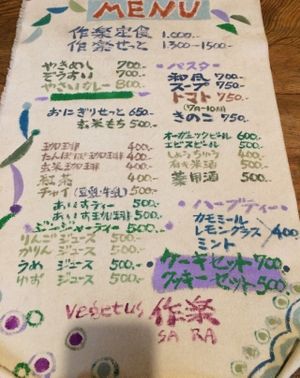 MENU
作楽定食 1,000-
作楽せっと 1300-1500-
やきめし 700-
ぞうすい 700-
やさいカレー 800-
おにぎりせっと 650-
玄米もち 500-
珈琲 400-
たんぽぽ珈琲 400-
玄米珈琲 400-
紅茶 400-
チャイ(豆乳・牛乳) 500-
あいすティー 500-
あいす珈琲 500-
ジュース
りんごジュース 500-
かりんジュース 500-
うめジュース 500-
ゆずジュース 500-
パスタ
和風 700-
スープ 750-
トマト 750-
(7月-10月)
きのこ 750-
オーガニックビール 600-
エビスビール 500-
しょうちゅう 400-
500-
薬用酒 500-
ハーブティー
カモミール
レモングラス 400
ミント
ケーキセット 700
クッキーセット 500
Vegetus 作楽
SARA